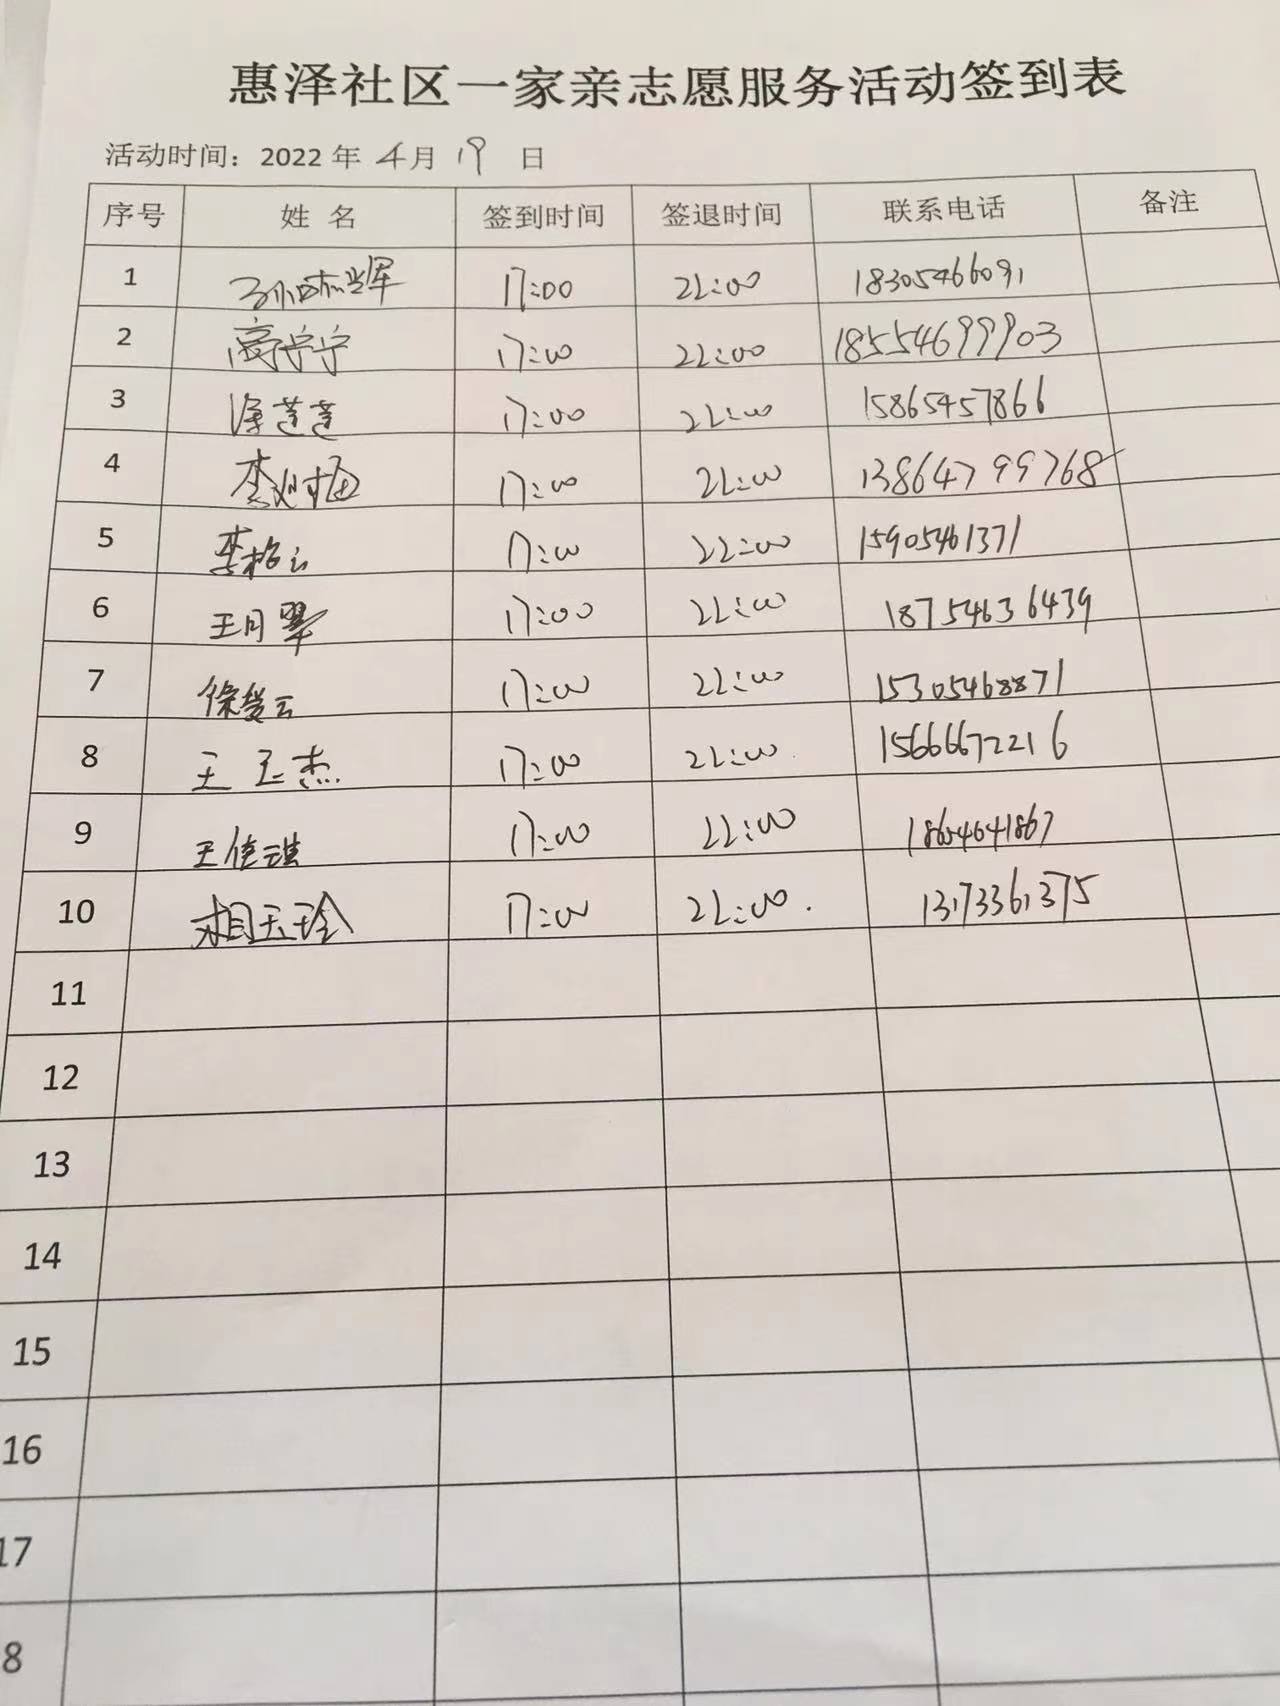 惠泽社区一家亲志愿服务活动签到表
活动时间：2022 年 4月 19 日
序号 姓 名 签到时间 签退时间 联系电话 备注
1 17:00 22:00 18305466091
2 高宁宁 17:00 22:00 18554699903
3 莲莲 17:00 22:00 15865457866
4 17:00 22:00 13864799768
5 17:00 22:00 15905461371
6 王月翠 17:00 22:00 18754636439
7 徐爱云 17:00 22:00 15305468871
8 王玉杰 17:00 22:00 15666672216
9 王佳琪 17:00 22:00
10 相玉玲 17:00 22:00
11
12
13
14
15
16
17
8